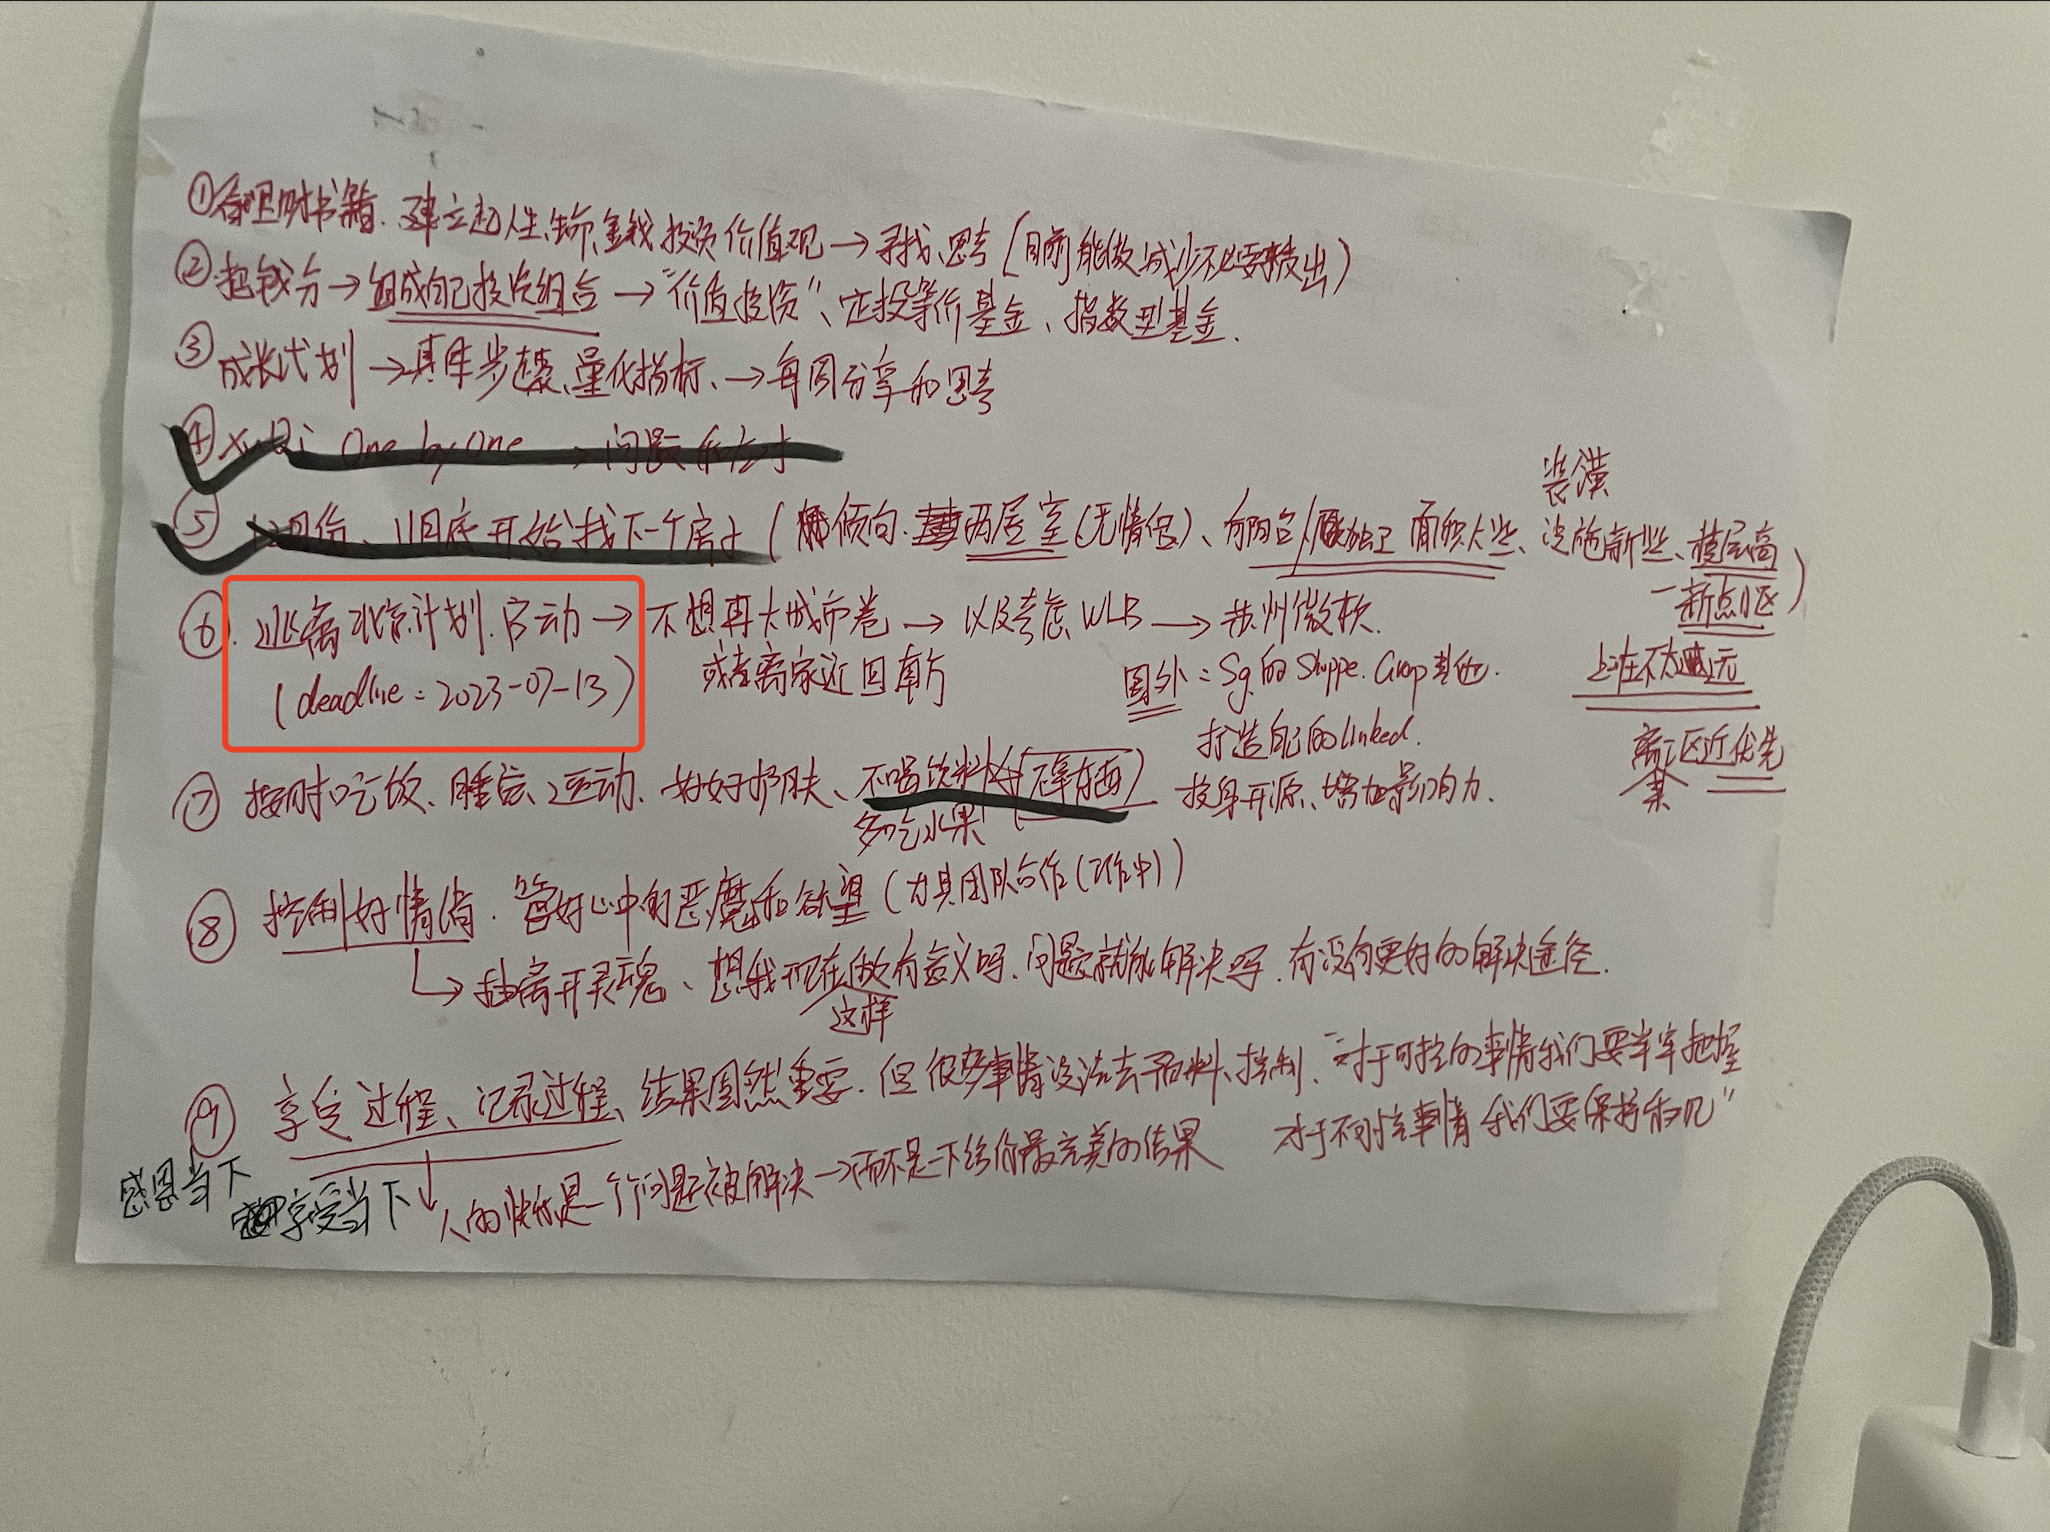 ①看理财书籍. 建立起人生、生命、金钱投资价值观→寻找、思考(目前能做减少不必要支出)
②把钱分→组成自己投资组合→"价值投资"、定投等价基金、指数型基金.
③成长计划→具体步骤、量化指标、→每周分享和思考
④ One by One → 问题和应对
⑤ 12月份、11月底开始找下一个房子(倾向.两居室(无情侣)、有阳台/独卫 面积大些、设施新些、楼层高
装潢
一新点小区)
⑥. 逃离北京计划.启动→不想再大城市卷→以及考虑WLB→苏州微软.
(deadline=2023-07-13)
或者离家近四南行
国外:Sg的Shoppe. Grap其他.
上班不太远
打造自己的linked.
离工区近优先
⑦ 按时吃饭、睡觉、运动、好好护肤、不喝饮料
投身开源、增加影响力.
多吃水果
⑧ 控制好情绪. 管好心中的恶魔和欲望(尤其团队合作(工作中))
↳抽离开灵魂、想我现在做有意义吗.问题就能解决吗.有没有更好的解决途径.
这样
⑨ 享受过程、记录过程、结果固然重要.但很多事情没法去预料、控制、"对于可控的事情我们要牢牢把握
对于不可控事情我们要保持乐观"
感恩当下
享受当下
人的快乐是一个个问题被解决→而不是一下给你最完美的结果